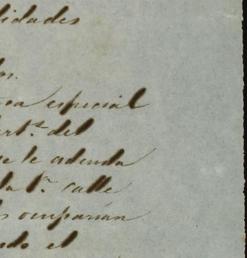 lidades
os.
ca especial
art.s del
ue le adeuda
la 1.a calle
s ocuparian
ndo el